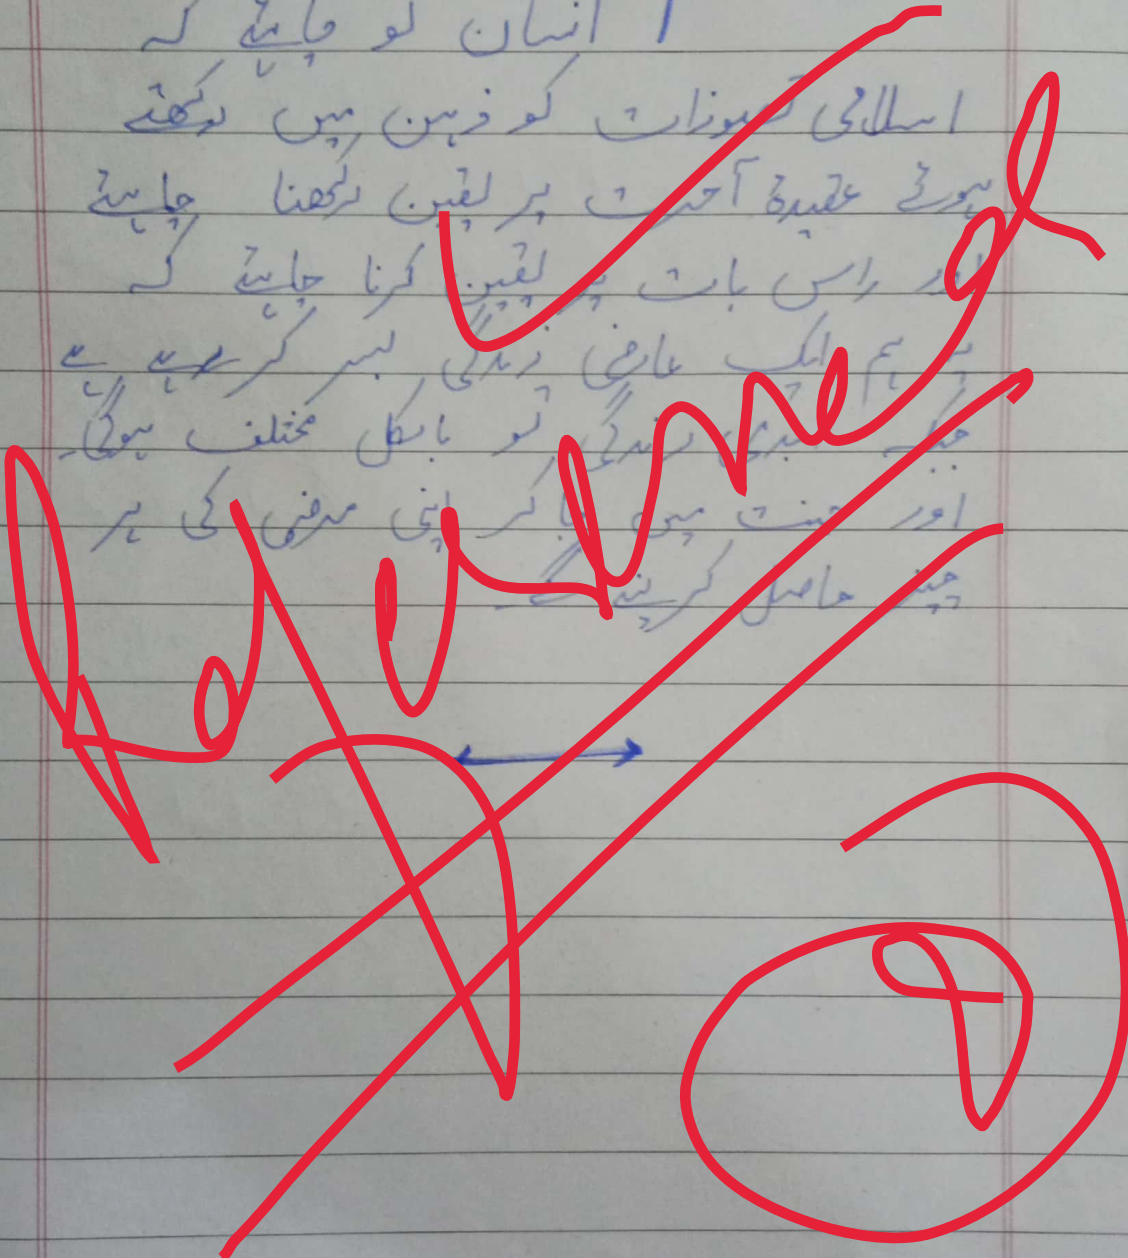 انسان کو چاہئے کہ
اسلامی تصورات کو ذہن میں رکھتے
ہوئے عقیدۂ آخرت پر یقین رکھنا چاہئے
اور اس بات پر یقین کرنا چاہئے کہ
ہم ایک عارضی زندگی بسر کر رہے ہے
زندگی تو بالکل مختلف ہوگی۔
اور جنت میں جا کر اپنی مرضی کی ہر
چیز حاصل کرینگے۔